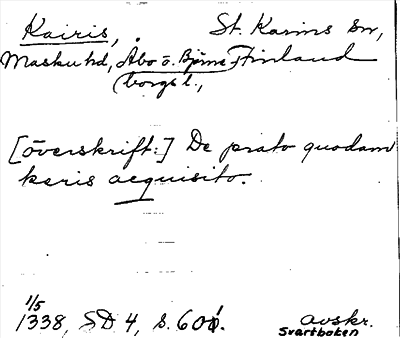 Kairis, St. Karins sn,
Masku hd, Åbo o. Björne- Finland
(borgs l.,
[överskrift:] De prato quodam
keris acquisito.
1/5
1338, SD 4, s. 601.
avskr.
Svartboken